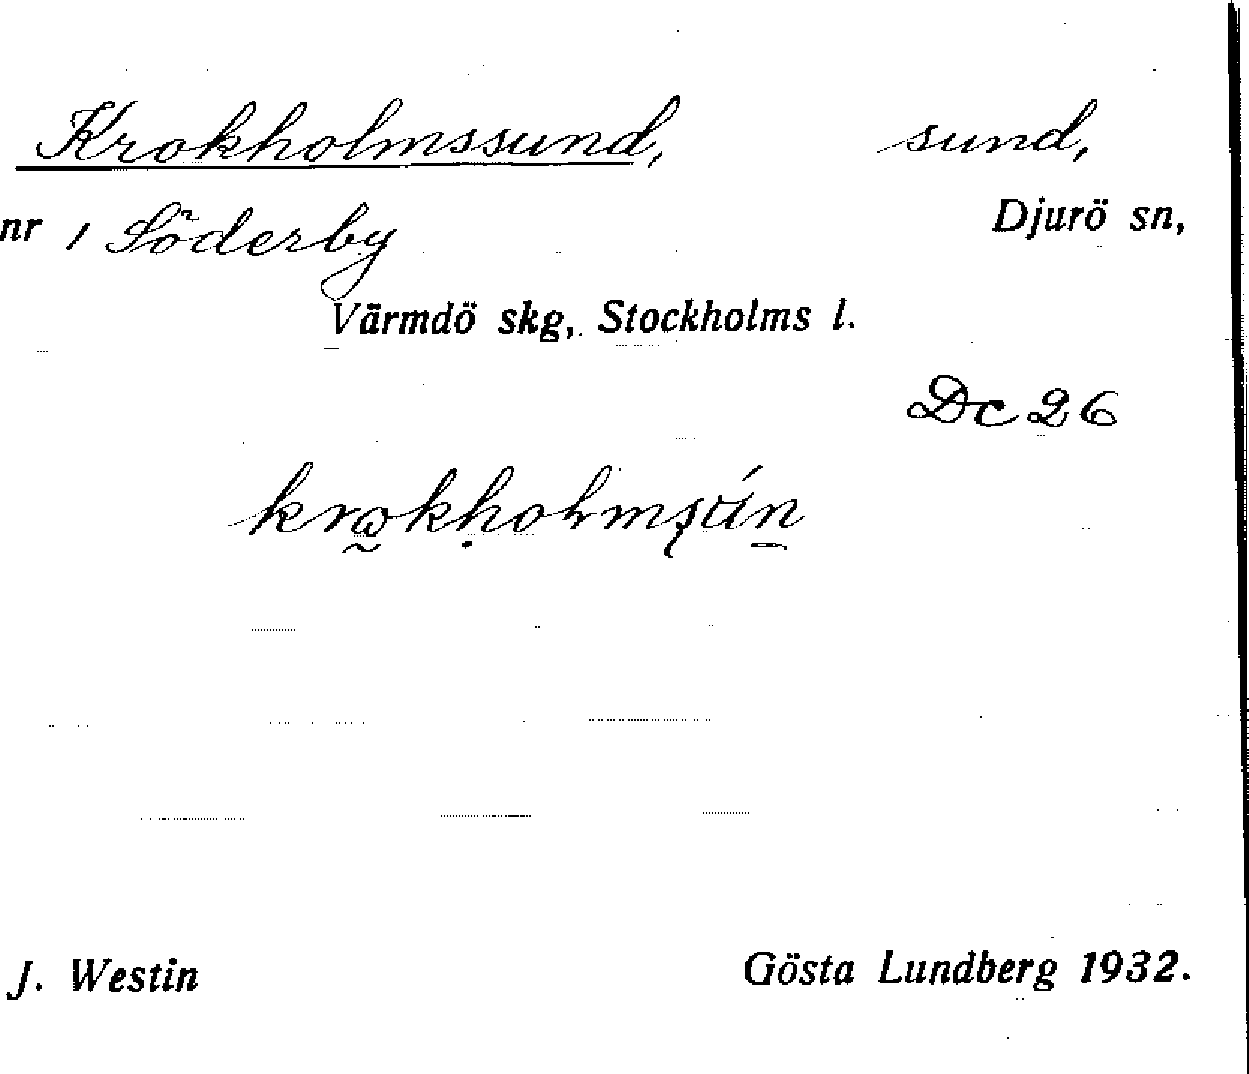 Krokholmssund, sund,
nr 1 Söderby Djurö sn,
Värmdö skg, Stockholms l.
Dc 26
J. Westin Gösta Lundberg 1932.